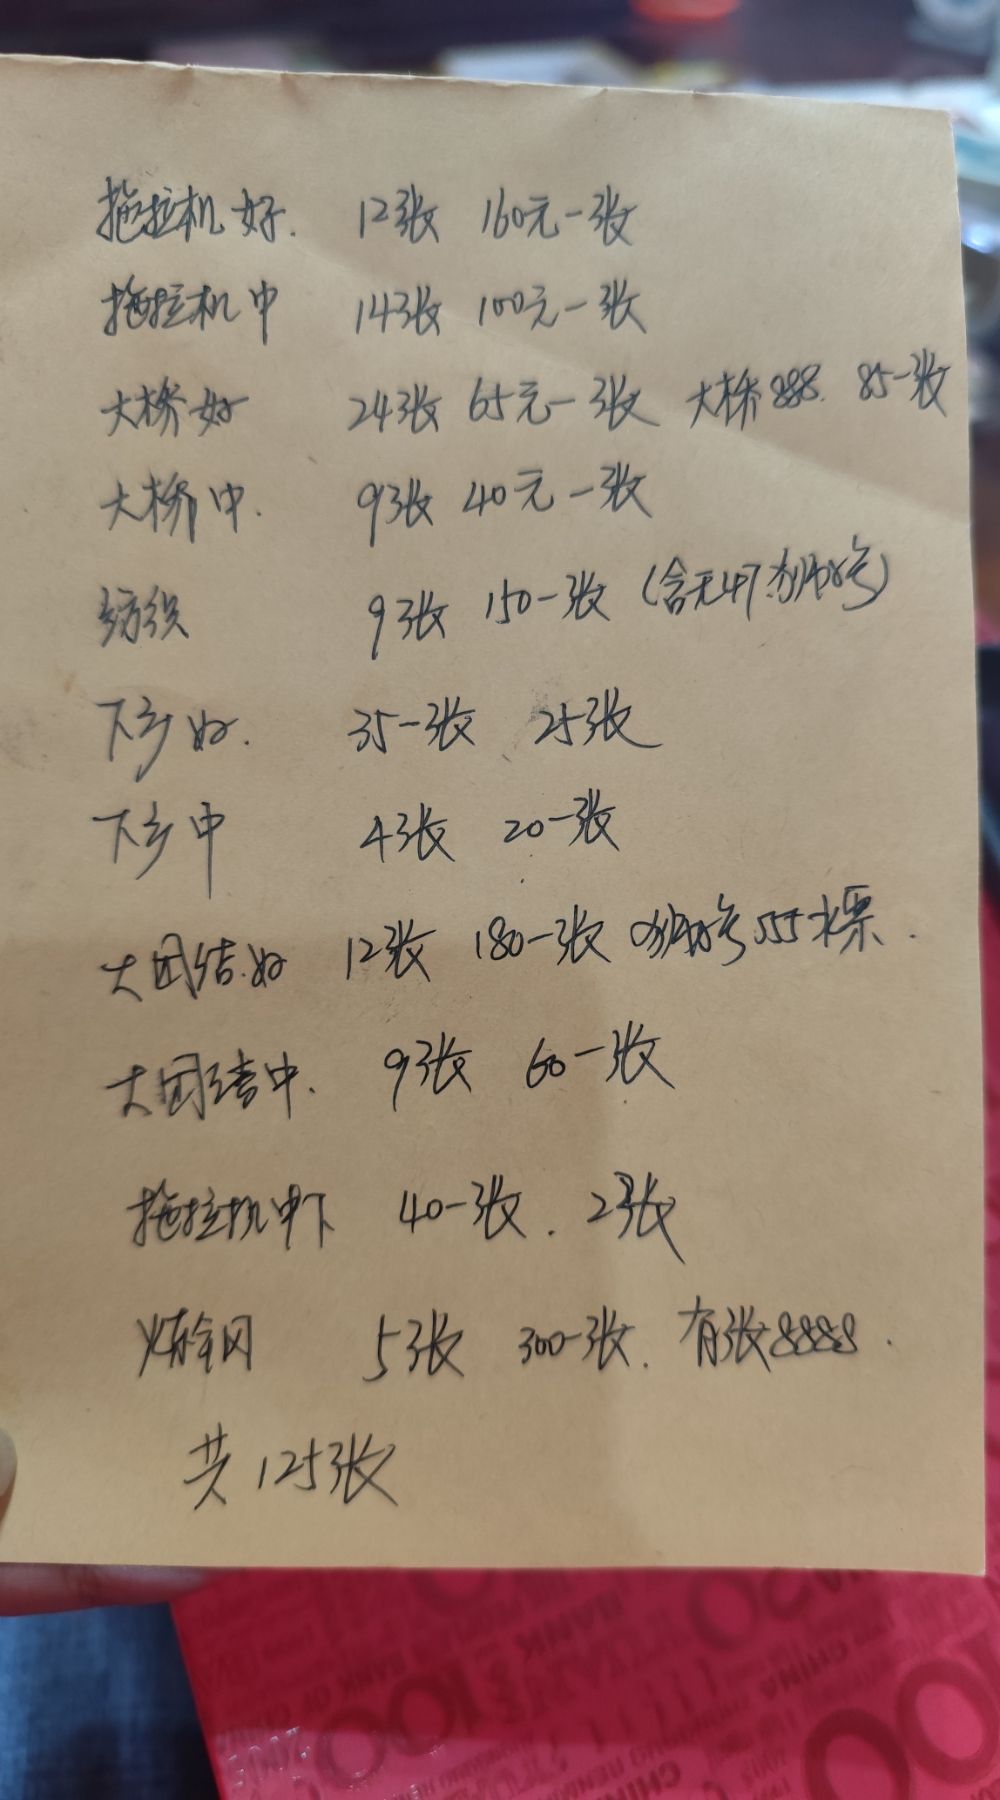 拖拉机好. 12张 160元一张
拖拉机中 14张 100元一张
大桥好 24张 65元一张 大桥888. 85一张
大桥中. 9张 40元一张
纺织 9张 150一张 (含无47.
下乡好. 35一张 25张
下乡中 4张 20一张
大团结.好 12张 180一张 555水票.
大团结中. 9张 60一张
拖拉机中下 40一张. 2张
炼钢 5张 300一张. 有张8888.
共125张
BANK OF CHINA
100